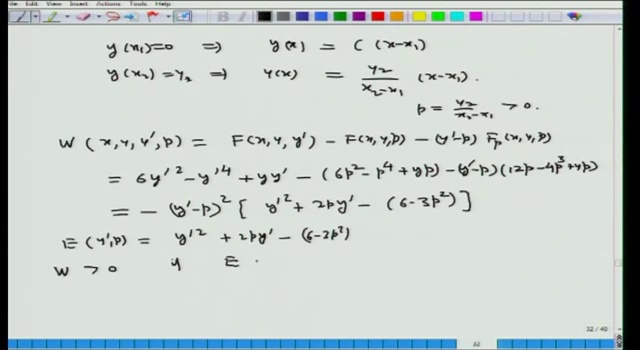 File Edit View Insert Actions Tools Help
y(x₁)=0 ⇒ y(x) = C(x-x₁)
y(x₂)=y₂ ⇒ y(x) = y₂/(x₂-x₁) (x-x₁).
p = y₂/(x₂-x₁) > 0.
W(x,y,y',p) = F(x,y,y') - F(x,y,p) - (y'-p) Fₚ(x,y,p)
= 6y'² - y'⁴ + yy' - (6p² - p⁴ + yp) - (y'-p)(12p - 4p³ + yp)
= - (y'-p)² [ y'² + 2py' - (6-3p²) ]
E(y',p) = y'² + 2py' - (6-3p²)
W > 0 if E .
32 / 40
32